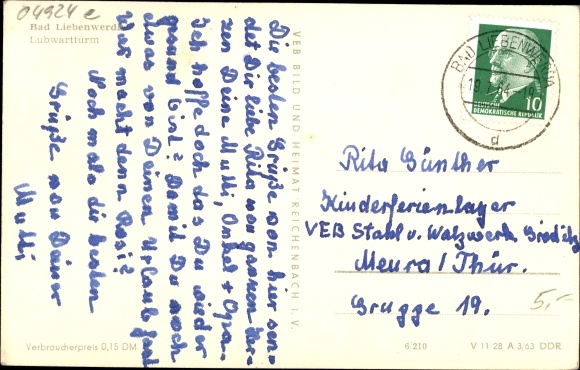 04924 e
Bad Liebenwerda
Lubwartturm
Die besten Grüße von hier sen-
det Dir liebe Rita von ganzen Her-
zen Deine Mutti, Onkel + Opa.
Ich hoffe doch das Du wieder
gesund bist? Damit Du noch
etwas von Deinen Urlaub hast
Was macht denn Rosi?
Noch mals die besten
Grüße von Deiner
Mutti
VEB BILD UND HEIMAT REICHENBACH I. V.
BAD LIEBENWERDA
d
DEUTSCHE
DEMOKRATISCHE REPUBLIK
10
Rita Günther
Kinderferienlager
VEB Stahl u. Walzwerk Gröditz
Meura / Thür.
Gruppe 19.
5,-
Verbraucherpreis 0,15 DM
6/210
V 11 28 A 3/63 DDR